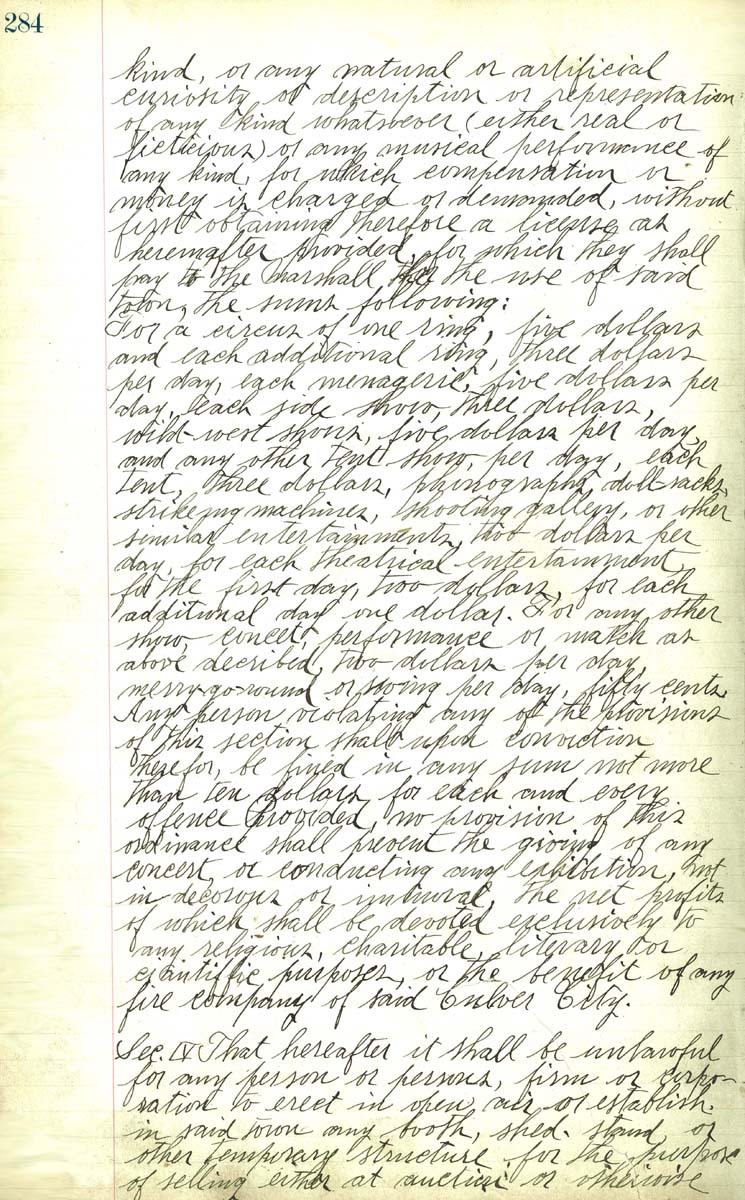 284
kind, or any natural or artificial
curiosity or description or representation
of any kind whatsoever (either real or
ficticious) or any musical performance of
any kind, for which compensation or
money is charged or demanded, without
first obtaining therefore a license as
hereinafter provided, for which they shall
pay to the marshall the use of said
town, the sums following:
For a circus of one ring, five dollars
and each additional ring, three dollars
per day, each menagerie, five dollars per
day, each side show, three dollars,
wild-west shows, five dollars per day,
and any other tent show, per day, each
tent, three dollars, phonographs, doll racks,
strikeing machines, shooting gallery, or other
similar entertainments, two dollars per
day, for each theatrical entertainment,
for the first day, two dollars, for each
additional day one dollar. For any other
show, concet, performance or match as
above decribed, two dollars per day,
merry-go-round or swing per day, fifty cents.
Any person violating any of the provisions
of this section shall upon conviction
therefor, be fined in any sum not more
than ten dollars, for each and every
offence provided, no provision of this
ordinance shall prevent the giving of any
concert, or conducting any exhibition, not
in decorous or immoral, the net profits
of which shall be devoted exclusively to
any religious, charitable, literary or
scientiffic purposes, or the benefit of any
fire company of said Culver City.
Sec. IV That hereafter it shall be unlawful
for any person or persons, firm or corpo-
ration to erect in open air or establish
in said town any booth, shed, stand or
other temporary structure for the purpose
of selling either at auction or otherwise